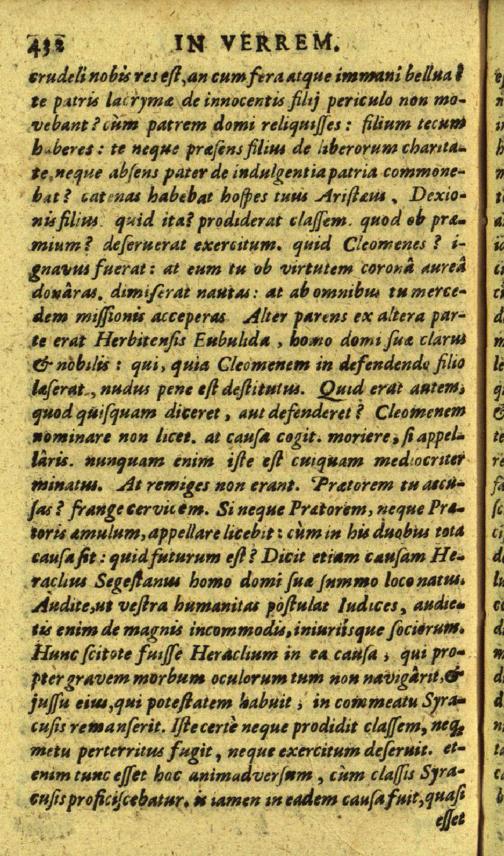 432 IN VERREM.
crudeli nobis res est, an cum fera atque immani bellua?
te patris lacrymæ de innocentis filij periculo non mo-
vebant? cùm patrem domi reliquisses: filium tecum
haberes: te neque præsens filius de liberorum charita-
te, neque absens pater de indulgentia patria commone-
bat? catenas habebat hospes tuus Aristæus, Dexio-
nis filius. quid ita? prodiderat classem. quod ob præ-
mium? deseruerat exercitum. quid Cleomenes? i-
gnavus fuerat: at eum tu ob virtutem coronâ aureâ
donâras. dimiserat nautas: at ab omnibus tu merce-
dem missionis acceperas. Alter parens ex altera par-
te erat Herbitensis Eubulida, homo domi suæ clarus
& nobilis: qui, quia Cleomenem in defendendo filio
læserat, nudus pene est destitutus. Quid erat autem,
quod quisquam diceret, aut defenderet? Cleomenem
nominare non licet. at causa cogit. moriere, si appel-
lâris. nunquam enim iste est cuiquam mediocriter
minatus. At remiges non erant. Prætorem tu accu-
sas? frange cervicem. Si neque Prætorem, neque Præ-
toris æmulum, appellare licebit: cùm in his duobus tota
causa sit: quid futurum est? Dicit etiam causam He-
raclius Segestanus homo domi suæ summo loco natus.
Audite, ut vestra humanitas pòstulat Iudices, audie-
tis enim de magnis incommodis, iniuriîsque sociorum.
Hunc scitote fuisse Heraclium in ea causa, qui pro-
pter gravem morbum oculorum tum non navigârit, &
jussu eius, qui potestatem habuit, in commeatu Syra-
cusis remanserit. Iste certè neque prodidit classem, neq;
metu perterritus fugit, neque exercitum deseruit. et-
enim tunc esset hoc animadversum, cùm classis Syra-
cusis proficiscebatur. is tamen in eadem causa fuit, quasi
esset